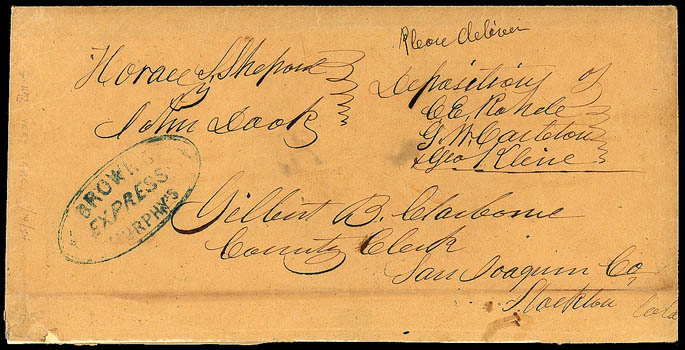 Please deliver
Horace S. Shepard
vs
John Doak
Depositions of
C.E. Rohde
G.W. Carleton
& Geo Kleine
BROWN'S
EXPRESS
MURPHY'S
Gilbert B. Claiborne
County Clerk
San Joaquin Co,
Stockton